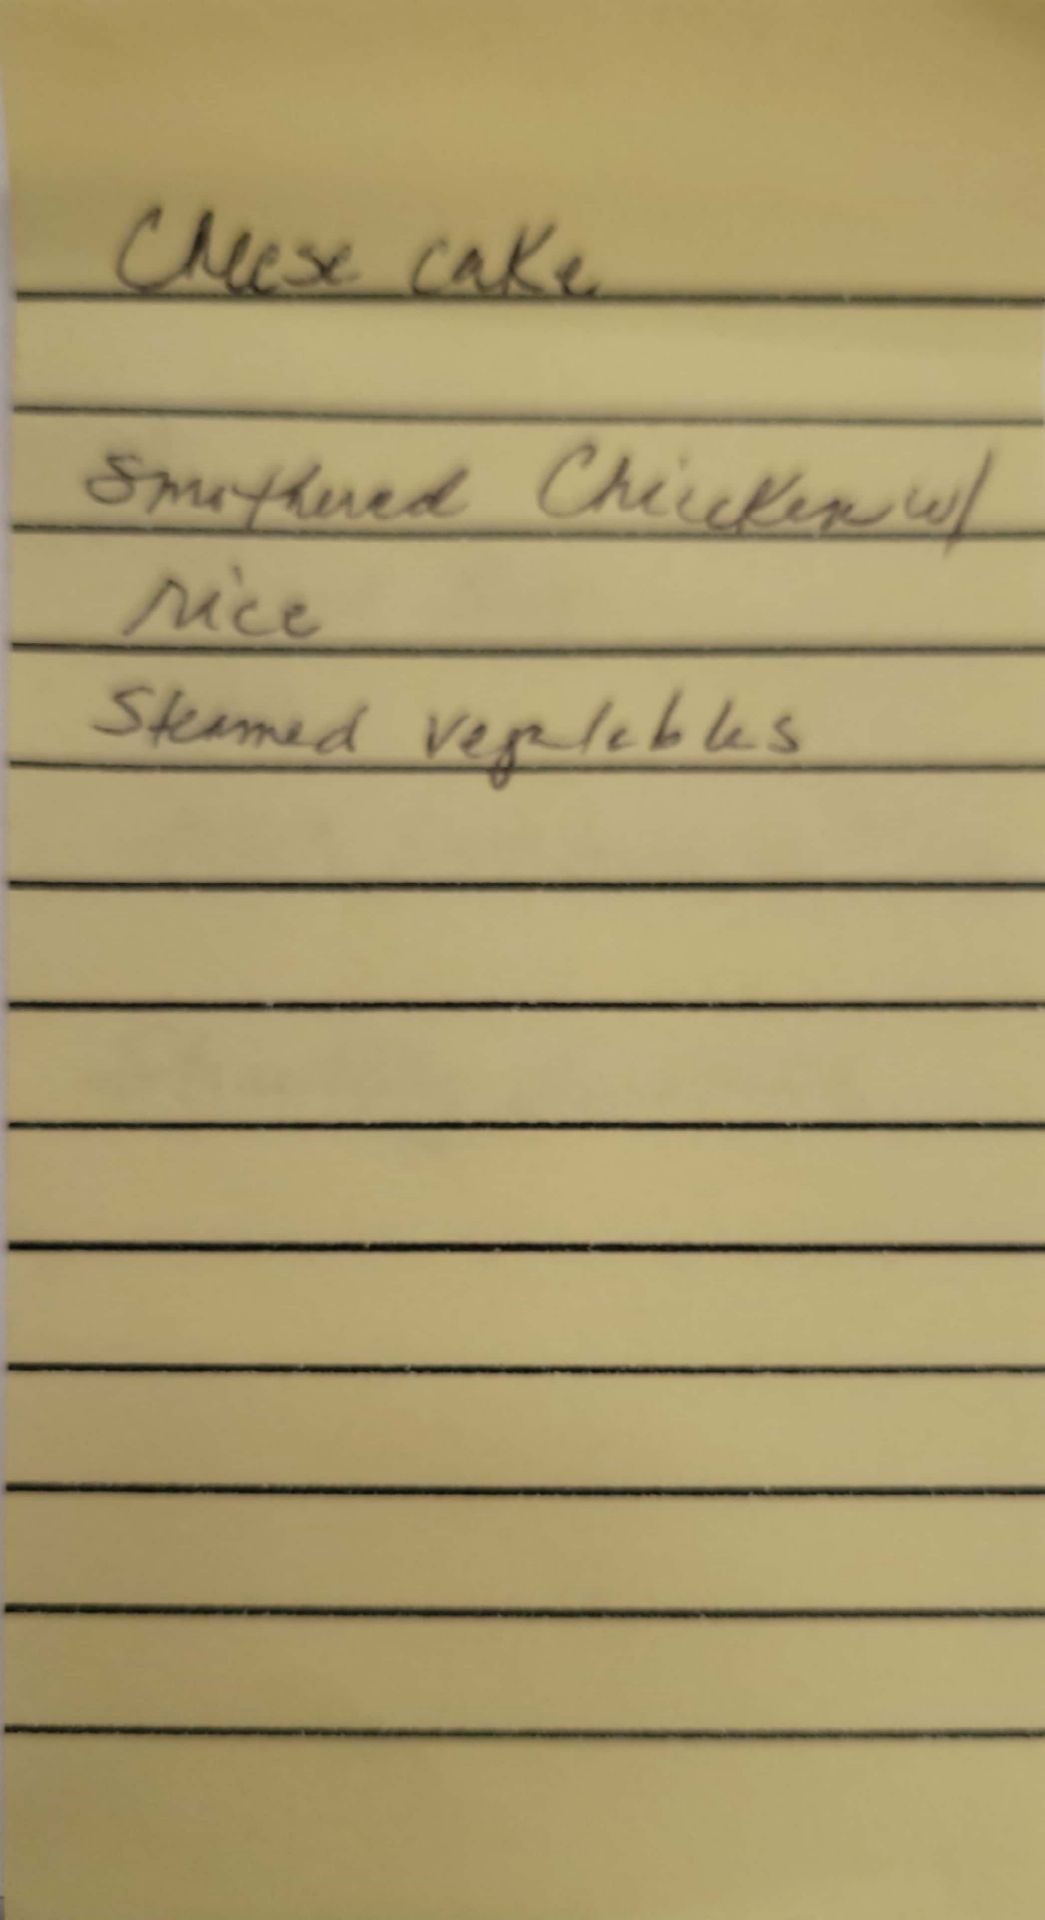 Cheese cake
Smothered Chicken w/
rice
Steamed vegetables